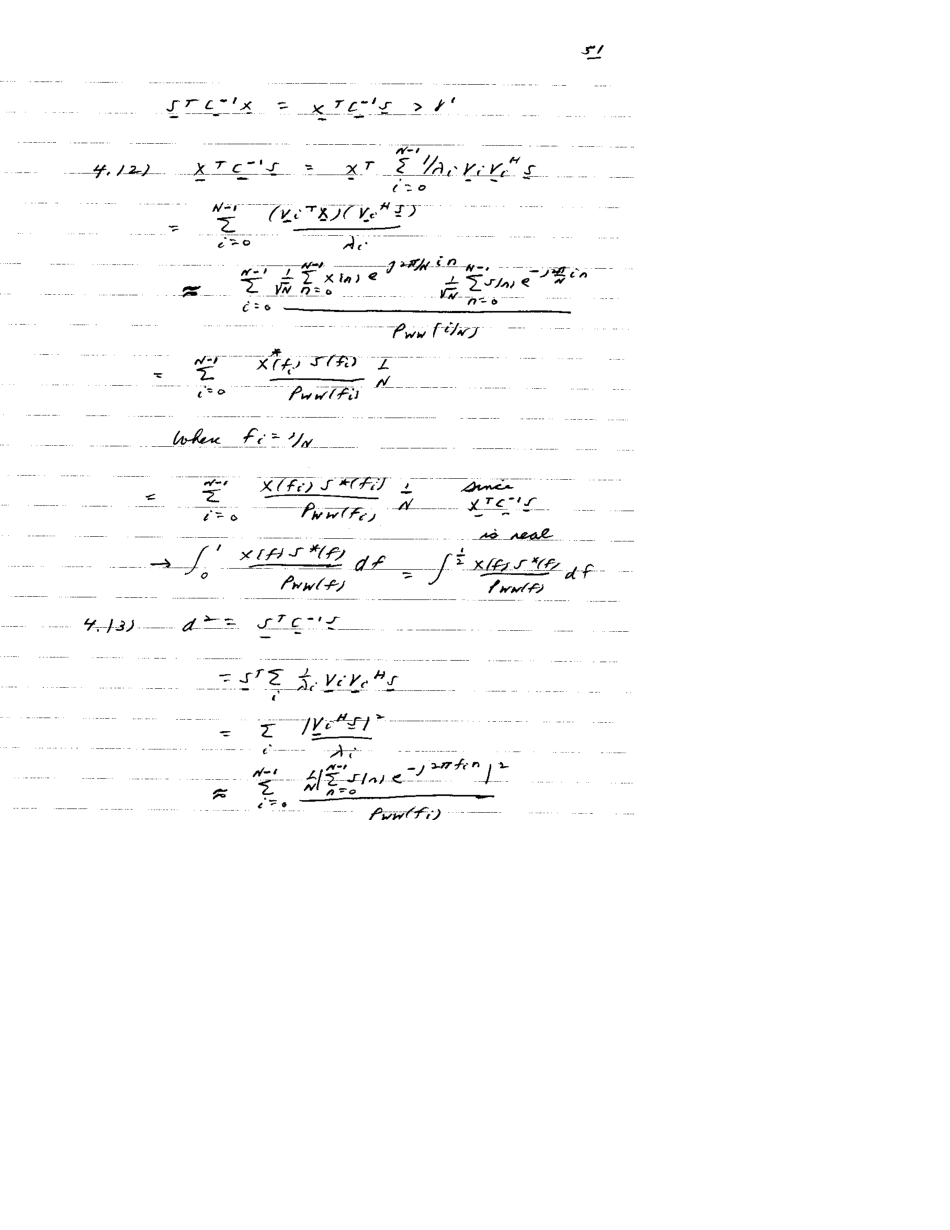 51
S^T C^-1 x = x^T C^-1 S > γ'
4.12) x^T C^-1 S = x^T Σ_{i=0}^{N-1} 1/λ_i V_i V_i^H S
= Σ_{i=0}^{N-1} (V_i^T x)(V_i^H S) / λ_i
≈ Σ_{i=0}^{N-1} 1/√N Σ_{n=0}^{N-1} x[n] e^{j2π/N in} 1/√N Σ_{n=0}^{N-1} s[n] e^{-j 2π/N in} / Pww[i/N]
= Σ_{i=0}^{N-1} X*(f_i) S(f_i) / Pww(f_i) 1/N
where f_i = i/N
= Σ_{i=0}^{N-1} X(f_i) S*(f_i) / Pww(f_i) 1/N since x^T C^-1 S is real
→ ∫_0^1 X(f) S*(f) / Pww(f) df = ∫^{1/2} X(f) S*(f) / Pww(f) df
4.13) d² = S^T C^-1 S
= S^T Σ_i 1/λ_i V_i V_i^H S
= Σ_i |V_i^H S|² / λ_i
≈ Σ_{i=0}^{N-1} 1/N |Σ_{n=0}^{N-1} s[n] e^{-j2πf_i n}|² / Pww(f_i)